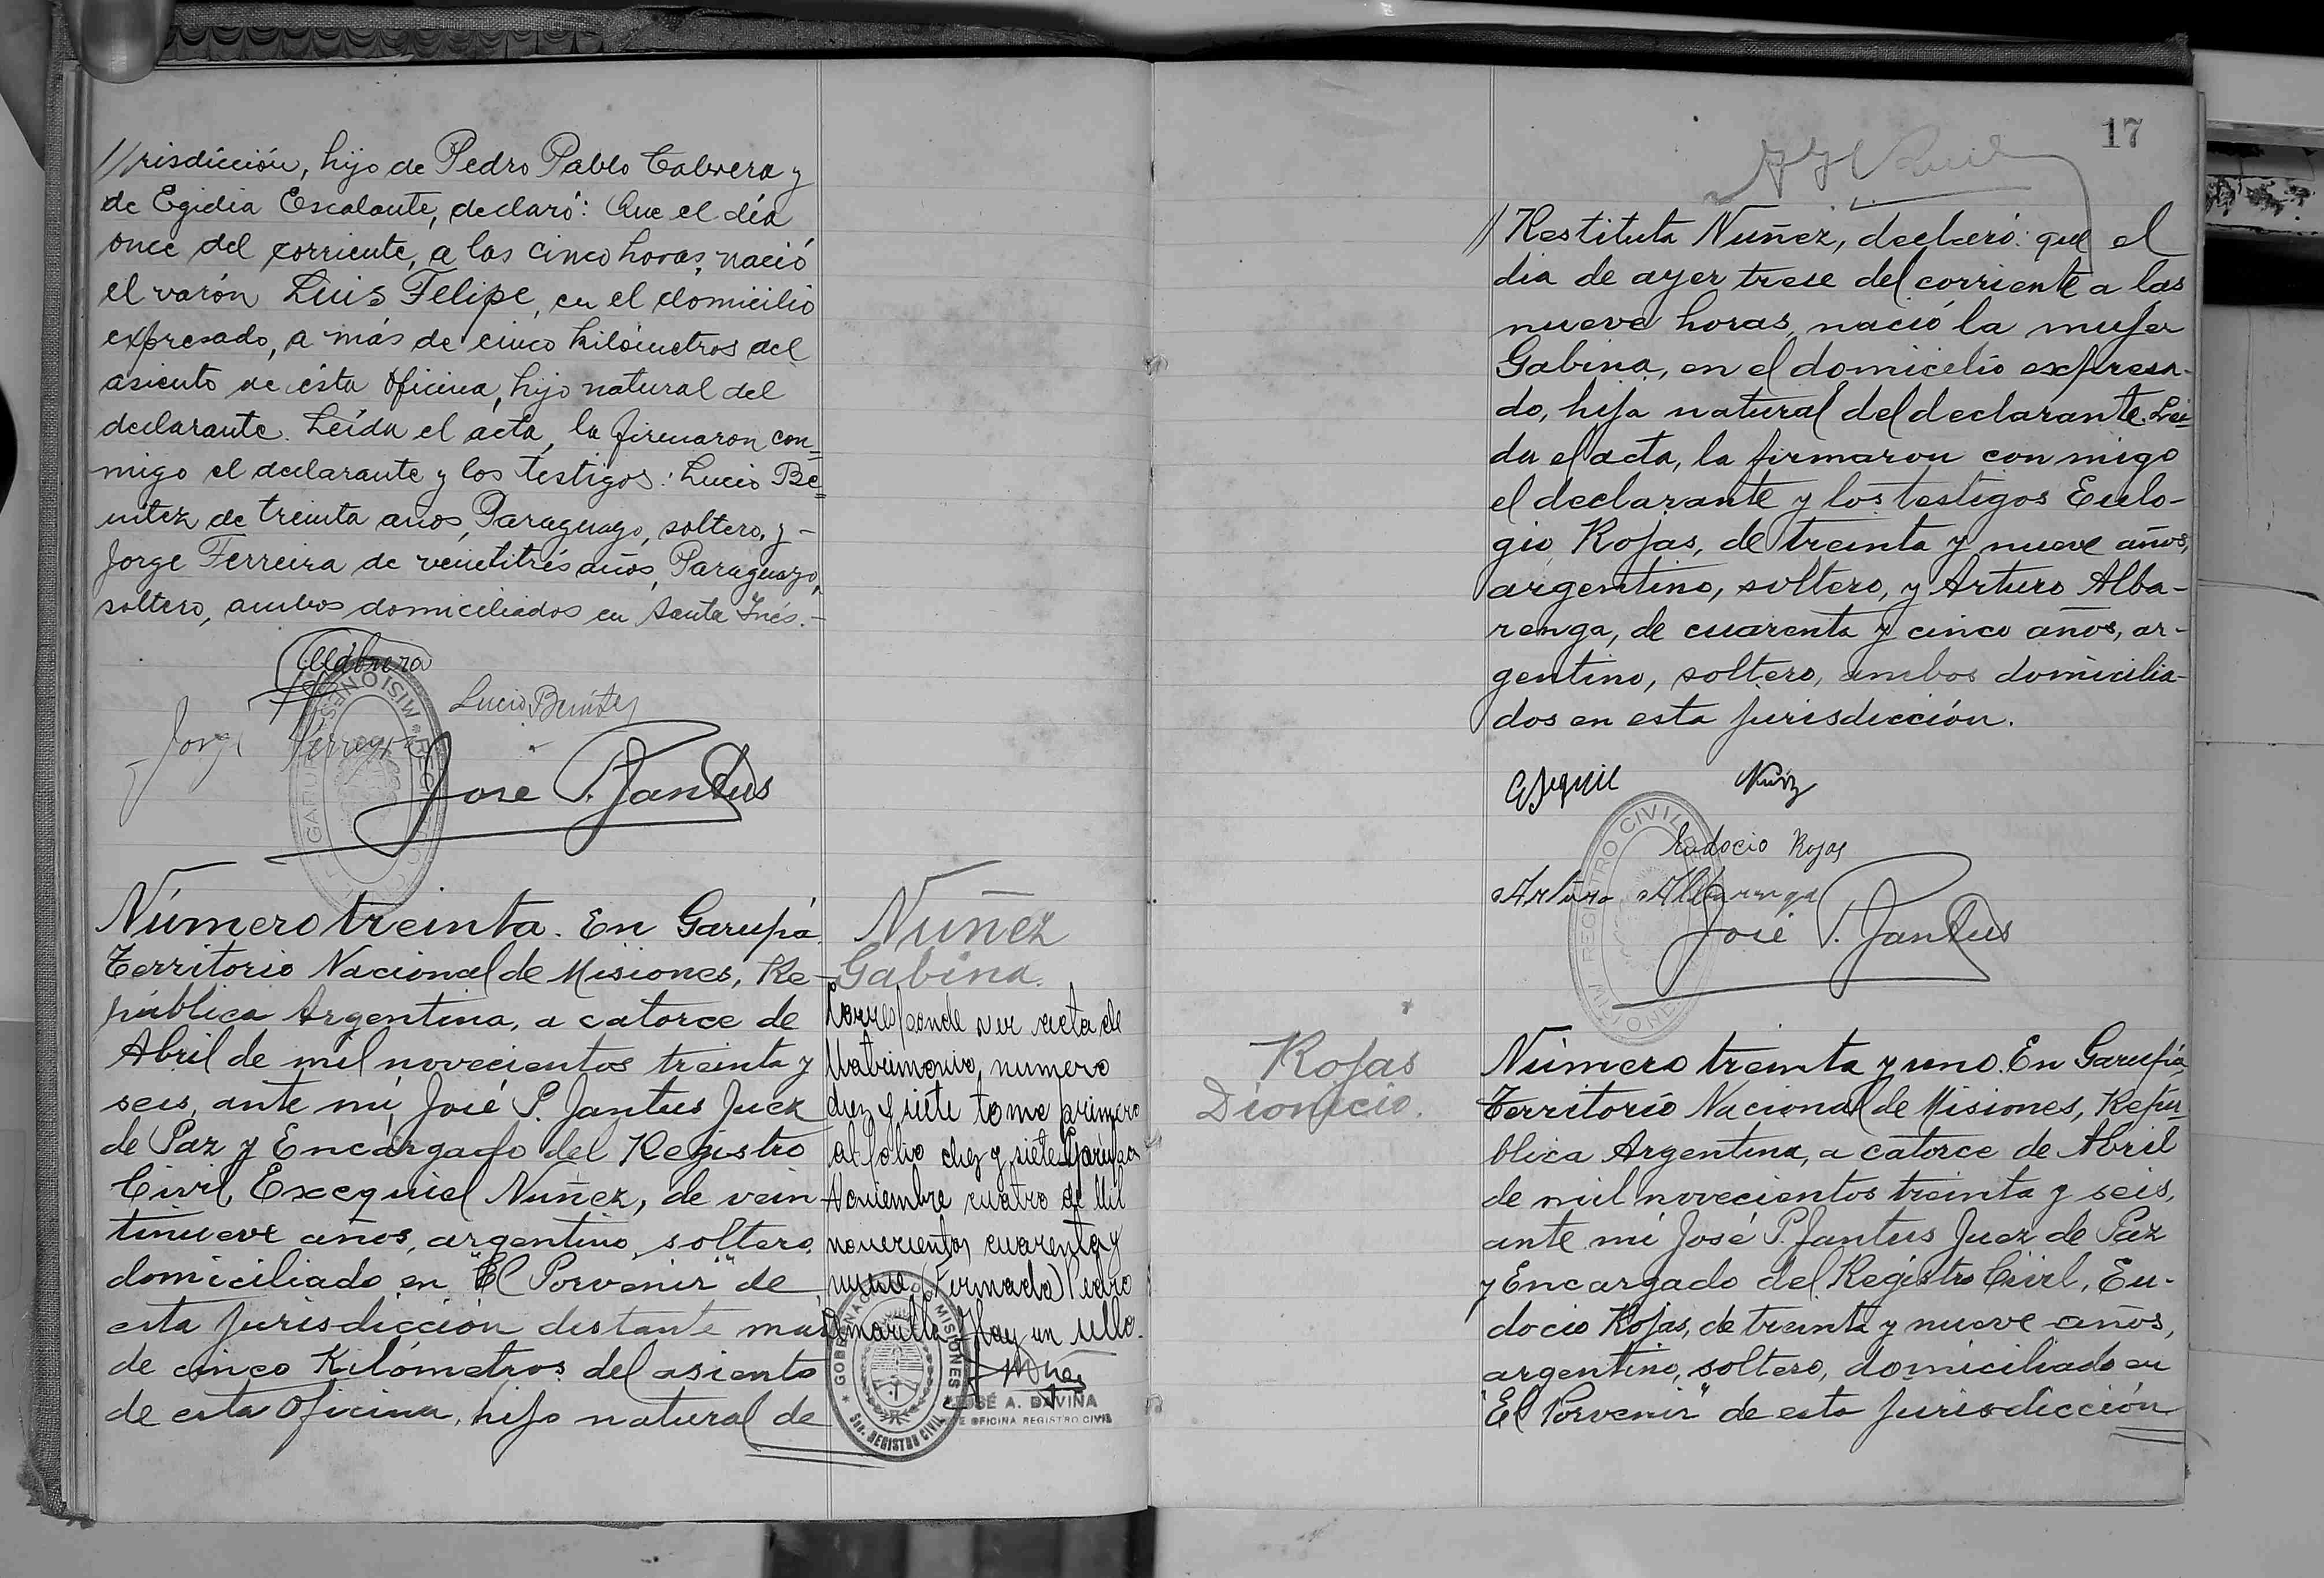 //risdicción, hijo de Pedro Pablo Cabrera y
de Egidia Escalante, declaró: Que el día
once del corriente, a las cinco horas, nació
el varón Luis Felipe, en el domicilio
expresado, a más de cinco kilómetros del
asiento de ésta Oficina, hijo natural del
declarante. Leída el acta, la firmaron con=
migo el declarante y los testigos: Lucio Be=
nitez de treinta años, Paraguayo, soltero, y -
Jorge Ferreira de veintitrés años, Paraguayo,
soltero, ambos domiciliados en Santa Inés.-
Cabrera
Lucio Benitez
Jorge Ferreyra
José P. Jantus
Número treinta. En Garupá
Territorio Nacional de Misiones, Re-
pública Argentina, a catorce de
Abril de mil novecientos treinta y
seis, ante mí, José P. Jantus Juez
de Paz y Encargado del Registro
Civil, Exequiel Nuñez, de vein
tinueve años, argentino, soltero,
domiciliado en "El Porvenir" de
esta jurisdicción distante mas
de cinco Kilómetros del asiento
de esta Oficina, hijo natural de
Nuñez
Gabina.
Corresponde ver acta de
Matrimonio, numero
diez y siete tomo primero
al folio diez y siete Garupa
Noviembre cuatro de Mil
novecientos cuarenta y
nueve (Firmado) Pedro
Amarilla - Hay un sello.
GOBERNACION DE MISIONES
Sec. REGISTRO CIVIL
JOSÉ A. DAVIÑA
JEFE OFICINA REGISTRO CIVIL
17
//Restituta Nuñez, declaró: que el
dia de ayer trese del corriente a las
nueve horas, nació la mujer
Gabina, en el domicilio expresa-
do, hija natural del declarante. Leí=
da el acta, la firmaron conmigo
el declarante y los testigos Eulo-
gio Rojas, de treinta y nueve años,
argentino, soltero, y Arturo Alba-
renga, de cuarenta y cinco años, ar-
gentino, soltero, ambos domicilia-
dos en esta jurisdicción.
Esequiel Nuñez
Eudocio Rojas
Arturo Albarenga
José P. Jantus
REGISTRO CIVIL
Rojas
Dionicio.
Número treinta y uno. En Garupá
Territorio Nacional de Misiones, Repú=
blica Argentina, a catorce de Abril
de mil novecientos treinta y seis,
ante mí José P. Jantus Juez de Paz
y Encargado del Registro Civil, Eu-
docio Rojas, de treinta y nueve años,
argentino, soltero, domiciliado en
"El Porvenir" de esta jurisdicción